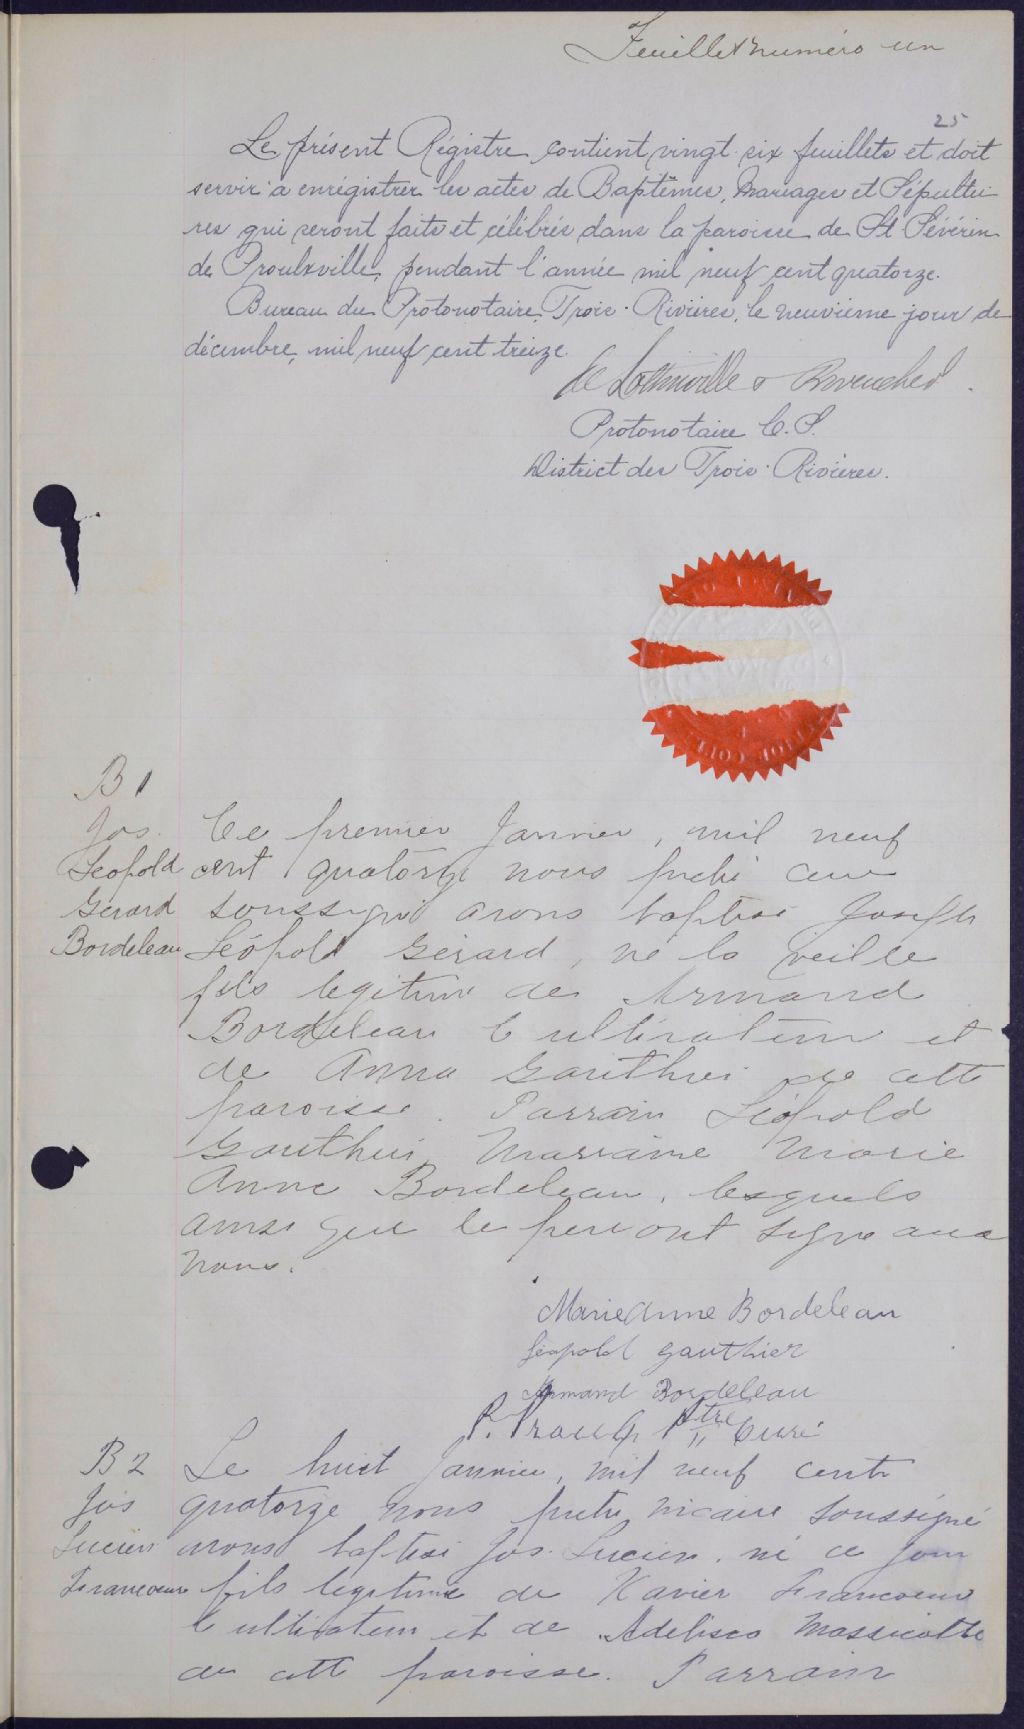 Feuillet numéro un
25
Le présent Régistre contient vingt-six feuillets et doit
servir a enrégistrer les actes de Baptêmes, Mariages et Sépultu-
res qui seront faits et célébrés dans la paroisse de St Sévérin
de Proulxville, pendant l'année mil neuf cent quatorze.
Bureau du Protonotaire, Trois-Rivières, le neuvième jour de
décembre, mil neuf cent treize.
Protonotaire C.S.
District des Trois-Rivières.
B 1
Jos.
Leopold
Gérard
Bordeleau
Ce premier Janvier, mil neuf
cent quatorze nous prêtre curé
soussigné avons baptisé Joseph
Léopold Gérard, né la veille
fils legitime de Armand
Bordeleau Cultivateur et
de Anna Gauthier de cette
paroisse. Parrain Léopold
Gauthier, Marraine Marie
Anne Bordeleau, lesquels
ainsi que le père ont signé avec
nous.
Marie Anne Bordeleau
Léopold Gauthier
Armand Bordeleau
Ptre Curé
B 2
Jos
Lucien
Francoeur
Le huit Janvier, mil neuf cent
quatorze nous prêtre vicaire soussigné
avons baptisé Jos. Lucien, né ce jour
fils legitime de Xavier Francoeur
Cultivateur et de Massicotte
de cette paroisse. Parrain